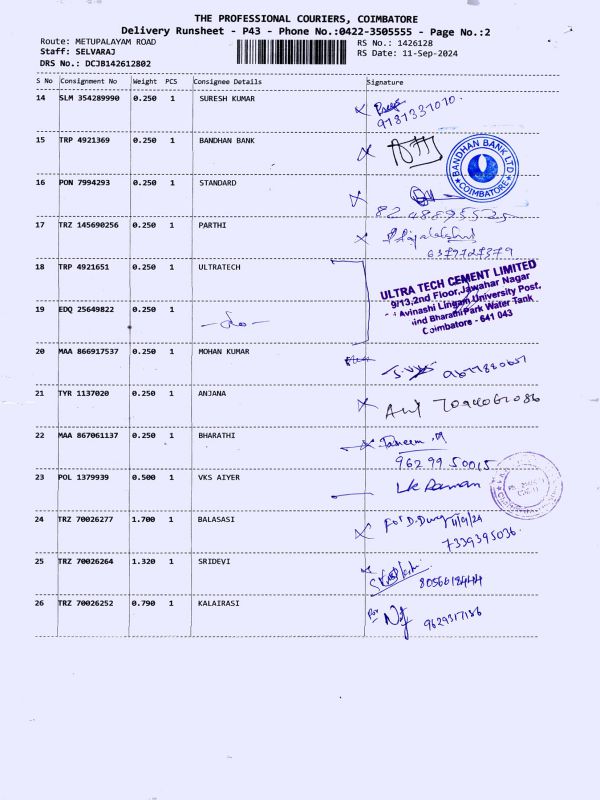 THE PROFESSIONAL COURIERS, COIMBATORE
Delivery Runsheet - P43 - Phone No.:0422-3505555 - Page No.:2
Route: METUPALAYAM ROAD
RS No.: 1426128
Staff: SELVARAJ
RS Date: 11-Sep-2024
DRS No.: DCJB142612802
S No Consignment No Weight PCS Consignee Details Signature
14 SLM 354289990 0.250 1 SURESH KUMAR
9787337070.
15 TRP 4921369 0.250 1 BANDHAN BANK
BANDHAN BANK LTD
COIMBATORE
16 PON 7994293 0.250 1 STANDARD
8248895525
17 TRZ 145690256 0.250 1 PARTHI
18 TRP 4921651 0.250 1 ULTRATECH
ULTRA TECH CEMENT LIMITED
9/13,2nd Floor,Jawahar Nagar
Avinashi Lingam University Post,
ind Bharathi Park Water Tank
Coimbatore - 641 043
19 EDQ 25649822 0.250 1
- do -
20 MAA 866917537 0.250 1 MOHAN KUMAR
21 TYR 1137020 0.250 1 ANJANA
22 MAA 867061137 0.250 1 BHARATHI
96299 50015
23 POL 1379939 0.500 1 VKS AIYER
24 TRZ 70026277 1.700 1 BALASASI
11/9/24
7339395036.
25 TRZ 70026264 1.320 1 SRIDEVI
26 TRZ 70026252 0.790 1 KALAIRASI
9629317136